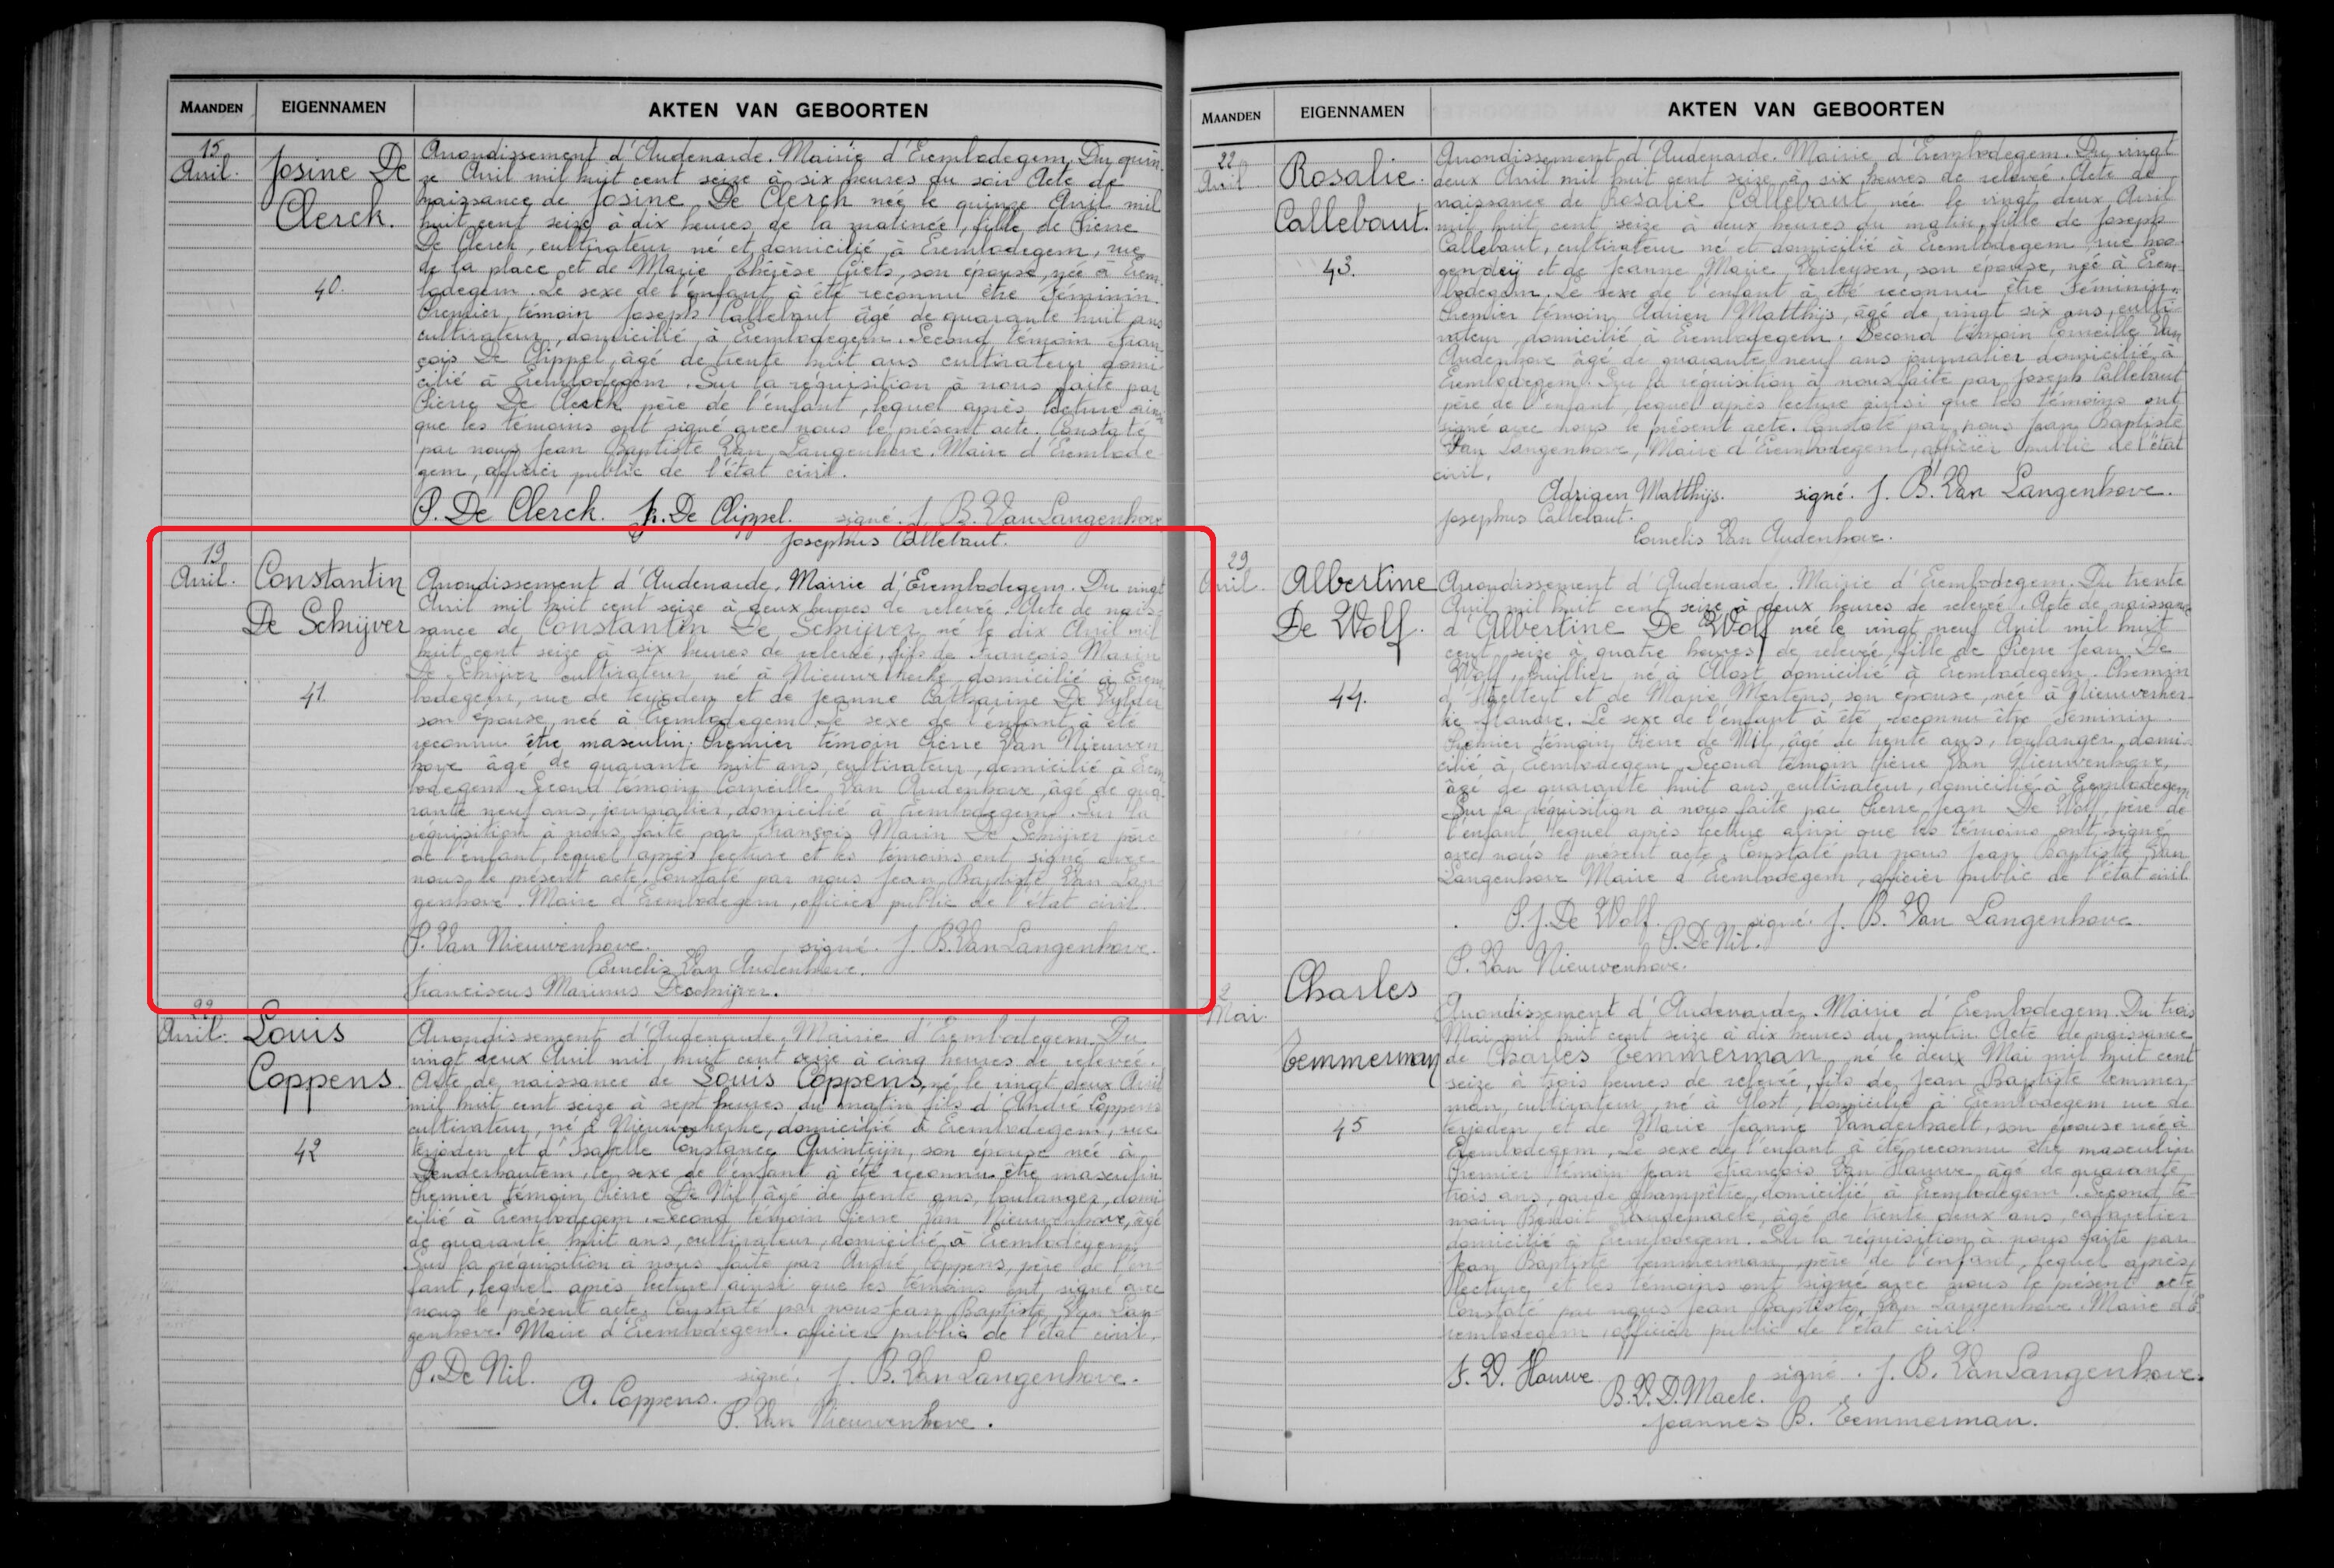 MAANDEN
EIGENNAMEN
AKTEN VAN GEBOORTEN
15
Avril.
Josine De
Clerck.
40.
Arrondissement d'Audenarde. Mairie d'Erembodegem. Du quin-
ze Avril mil huit cent seize à six heures du soir Acte de
naissance de Josine De Clerck née le quinze Avril mil
huit cent seize à dix heures de la matinée, fille de Pierre
De Clerck, cultivateur né et domicilié à Erembodegem, rue
de la place et de Marie Thérèse Giets, son épouse, née à Erem-
bodegem. Le sexe de l'enfant à été reconnu être féminin.
Premier témoin Joseph Callebaut âgé de quarante huit ans
cultivateur, domicilié à Erembodegem. Second témoin Fran-
çois De Clippel, âgé de trente huit ans cultivateur domi-
cilié à Erembodegem. Sur la réquisition à nous faite par
Pierre De Clerck père de l'enfant, lequel après lecture ainsi
que les témoins ont signé avec nous le présent acte. Constaté
par nous Jean Baptiste Van Langenhove. Maire d'Erembode-
gem, officier public de l'état civil.
P. De Clerck. F. De Clippel. signé. J. B. Van Langenhove
Josephus Callebaut.
19
Avril.
Constantin
De Schrijver
41.
Arrondissement d'Audenarde. Mairie d'Erembodegem. Du vingt
Avril mil huit cent seize à deux heures de relevée. Acte de nais-
sance de Constantin De Schrijver né le dix Avril mil
huit cent seize à six heures de relevée, fils de François Marin
De Schrijver cultivateur, né à Nieuwerkerke domicilié à Erem-
bodegem, rue de terjoden et de Jeanne Catharine De Vylder
son épouse, née à Erembodegem. Le sexe de l'enfant à été
reconnu être masculin. Premier témoin Pierre Van Nieuwen-
hove âgé de quarante huit ans, cultivateur, domicilié à Erem-
bodegem. Second témoin Corneille Van Audenhove, âgé de qua-
rante neuf ans, journalier, domicilié à Erembodegem. Sur la
réquisition à nous faite par François Marin De Schrijver père
de l'enfant, lequel après lecture et les témoins ont signé avec
nous le présent acte. Constaté par nous Jean Baptiste Van Lan-
genhove. Maire d'Erembodegem, officier public de l'état civil.
P. Van Nieuwenhove. signé. J. B. Van Langenhove.
Cornelis Van Audenhove.
Franciscus Marinus Deschrijver.
22
Avril.
Louis
Coppens.
42
Arrondissement d'Audenarde. Mairie d'Erembodegem. Du
vingt deux Avril mil huit cent seize à cinq heures de relevée.
Acte de naissance de Louis Coppens, né le vingt deux Avril
mil huit cent seize à sept heures du matin fils d'André Coppens
cultivateur, né à Nieuwerkerke, domicilié à Erembodegem, rue
terjoden et d'Isabelle Constance Quinteijn, son épouse née à
Denderhautem, le sexe de l'enfant à été reconnu être masculin
Premier témoin Pierre De Nil, âgé de trente ans, boulanger, domi-
cilié à Erembodegem. Second témoin Pierre Van Nieuwenhove, âgé
de quarante huit ans, cultivateur, domicilié à Erembodegem.
Sur la réquisition à nous faite par André Coppens, père de l'en-
fant, lequel après lecture ainsi que les témoins ont signé avec
nous le présent acte. Constaté par nous Jean Baptiste Van Lan-
genhove. Maire d'Erembodegem. officier public de l'état civil.
P. De Nil. signé. J. B. Van Langenhove.
A. Coppens.
P. Van Nieuwenhove.
MAANDEN
EIGENNAMEN
AKTEN VAN GEBOORTEN
22
Avril
Rosalie
Callebaut.
43.
Arrondissement d'Audenarde. Mairie d'Erembodegem. Du vingt
deux Avril mil huit cent seize à six heures de relevée. Acte de
naissance de Rosalie Callebaut née le vingt deux Avril
mil huit cent seize à deux heures du matin, fille de Joseph
Callebaut, cultivateur né et domicilié à Erembodegem rue hoo-
gendeij et de Jeanne Marie Verleysen, son épouse, née à Erem-
bodegem. Le sexe de l'enfant à été reconnu être féminin.
Premier témoin Adrien Matthijs, âgé de vingt six ans, culti-
vateur, domicilié à Erembodegem. Second témoin Corneille Van
Audenhove âgé de quarante neuf ans journalier domicilié à
Erembodegem. Sur la réquisition à nous faite par Joseph Callebaut
père de l'enfant, lequel après lecture ainsi que les témoins ont
signé avec nous le présent acte. Constaté par nous Jean Baptiste
Van Langenhove, Maire d'Erembodegem, officier public de l'état
civil.
Adrigen Matthijs. signé. J. B. Van Langenhove.
Josephus Callebaut.
Cornelis Van Audenhove.
29
Avril.
Albertine
De Wolf.
44.
Arrondissement d'Audenarde. Mairie d'Erembodegem. Du trente
Avril mil huit cent seize à deux heures de relevée. Acte de naissance
d'Albertine De Wolf née le vingt neuf Avril mil huit
cent seize à quatre heures de relevée fille de Pierre Jean De
Wolf, huillier né à Alost, domicilié à Erembodegem. Chemin
d'Haeltert et de Marie Mertens, son épouse, née à Nieuwerker-
ke flandre. Le sexe de l'enfant à été reconnu être féminin
Premier témoin Pierre de Nil, âgé de trente ans, boulanger, domi-
cilié à Erembodegem. Second témoin Pierre Van Nieuwenhove,
âgé de quarante huit ans, cultivateur, domicilié à Erembodegem
Sur la réquisition à nous faite par Pierre Jean De Wolf, père de
l'enfant lequel après lecture ainsi que les témoins ont signé
avec nous le présent acte. Constaté par nous Jean Baptiste Van
Langenhove Maire d'Erembodegem, officier public de l'état civil
P. J. De Wolf. signé. J. B. Van Langenhove.
P. De Nil.
P. Van Nieuwenhove.
2
Mai.
Charles
Temmerman
45
Arrondissement d'Audenarde. Mairie d'Erembodegem. Du trois
Mai mil huit cent seize à dix heures du matin Acte de naissance
de Charles Temmerman, né le deux Mai mil huit cent
seize à trois heures de relevée, fils de Jean Baptiste Temmer-
man, cultivateur, né à Alost, domicilié à Erembodegem rue de
terjoden et de Marie Jeanne Vanderhaelt, son épouse née à
Erembodegem. Le sexe de l'enfant à été reconnu être masculin
Premier témoin Jean François Van Hauwe âgé de quarante
trois ans, garde champêtre, domicilié à Erembodegem. Second té-
moin Benoit Vandemaele, âgé de trente deux ans, cabaretier
domicilié à Erembodegem. Sur la réquisition à nous faite par
Jean Baptiste Temmerman, père de l'enfant, lequel après
lecture et les témoins ont signé avec nous le présent acte
Constaté par nous Jean Baptiste Van Langenhove. Maire d'E-
rembodegem, officier public de l'état civil.
F. V. Hauwe signé. J. B. Van Langenhove.
B. V. D. Maele.
Joannes B. Temmerman.